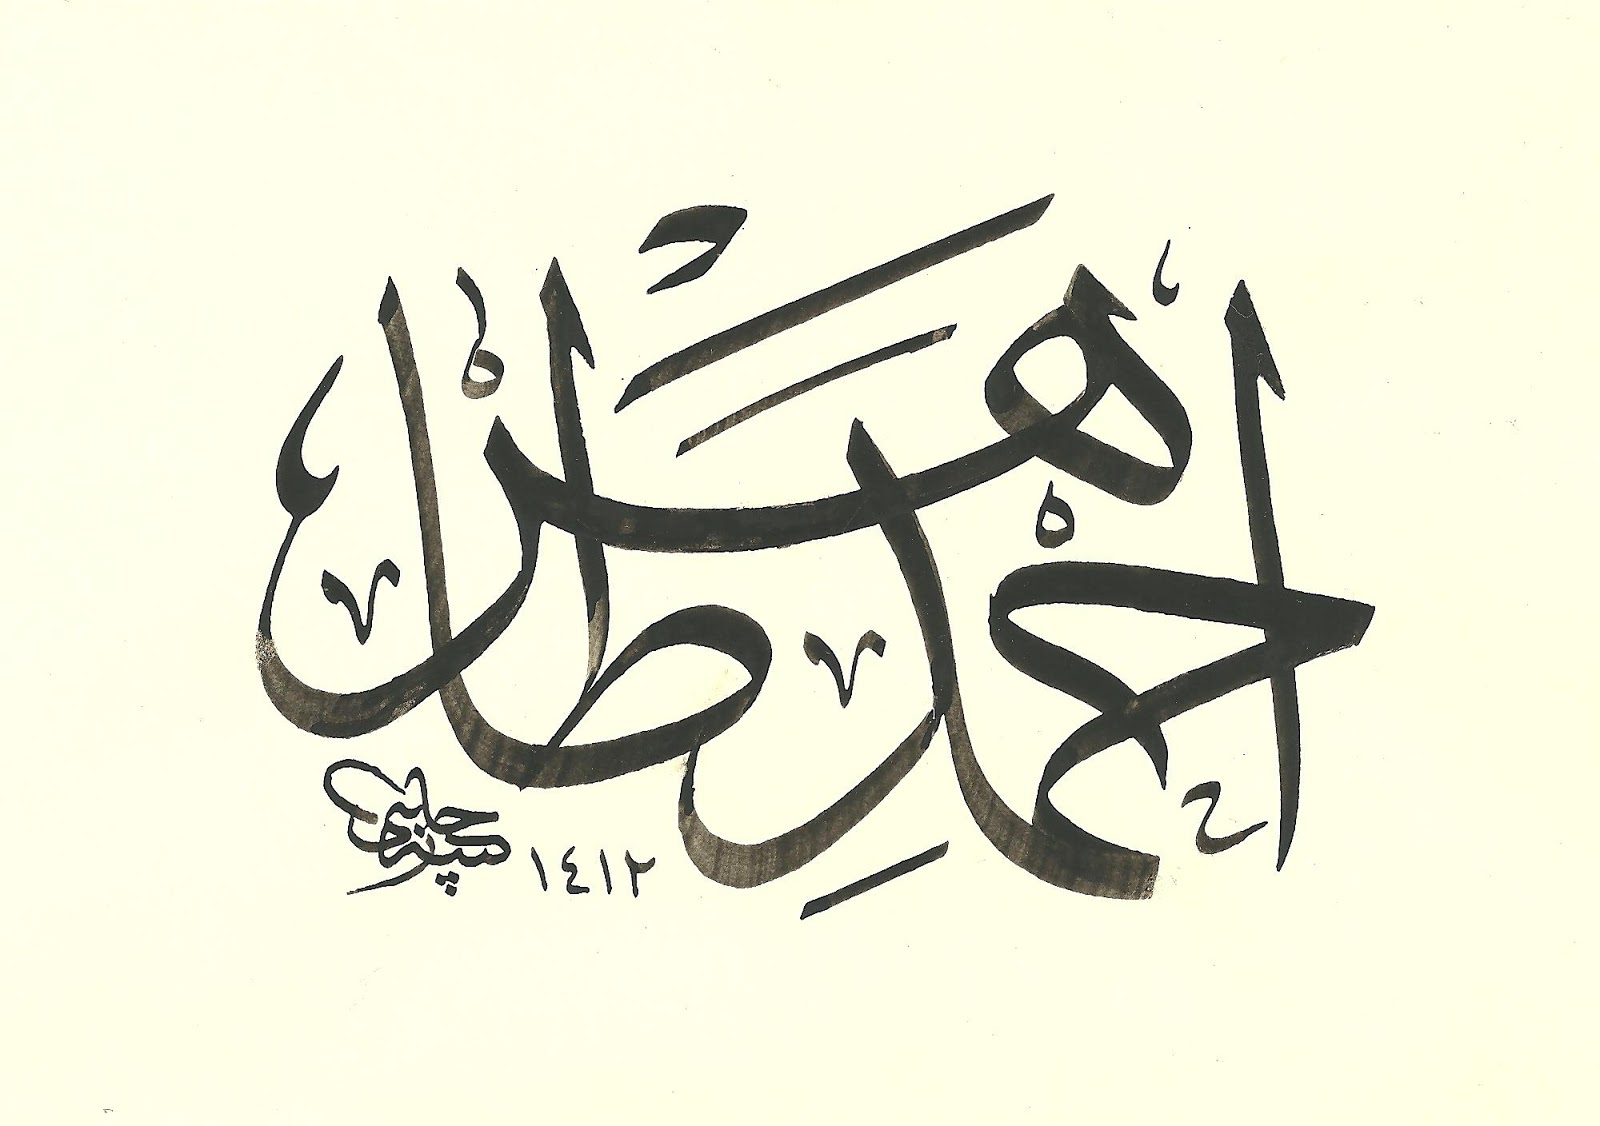 احمد طاهر
١٤١٢